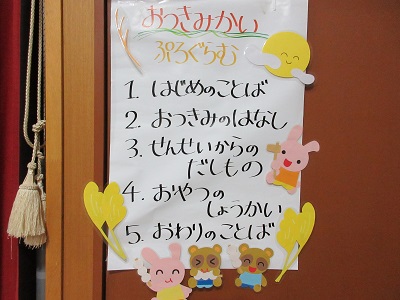 おつきみかい
ぷろぐらむ
1. はじめのことば
2. おつきみのはなし
3. せんせいからの
だしもの
4. おやつの
しょうかい
5. おわりのことば